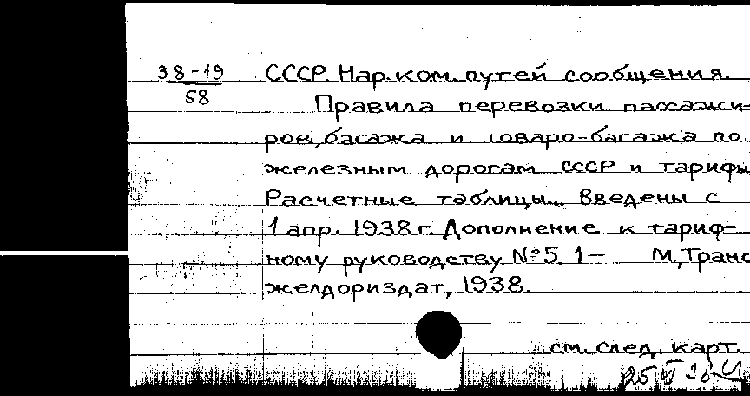 38-19
58
СССР. Нар.ком.путей сообщения.
Правила перевозки пассажи-
ров, багажа и товаро-багажа по
железным дорогам СССР и тарифы
Расчетные таблицы. Введены с
1 апр. 1938 г. Дополнение к тариф-
ному руководству №5. 1- М, Транс
желдориздат, 1938.
см. след. карт.